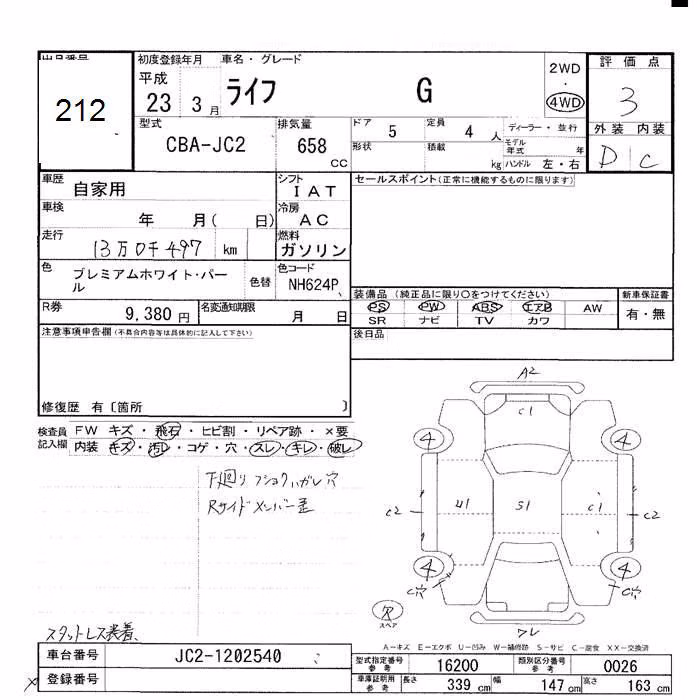 出品番号
212
初度登録年月
平成
23 3 月
車名・グレード
ライフ G
2WD
・
4WD
評価点
3
外装 内装
D C
型式
CBA-JC2
排気量
658
CC
ドア 5
定員 4 人
ディーラー・並行
形状
積載 kg
モデル年式 年
ハンドル 左・右
車歴
自家用
シフト
I A T
セールスポイント(正常に機能するものに限ります)
車検
年 月( 日)
冷房
A C
走行
13万0千497 km
燃料
ガソリン
色
プレミアムホワイト・パール
色替
色コード
NH624P
R券
9,380 円
名変通知期限
月 日
装備品 (純正品に限り○をつけてください)
PS PW ABS エアB AW
SR ナビ TV カワ
新車保証書
有・無
注意事項申告欄(不具合内容等は具体的に記入して下さい)
後日品
修復歴 有〔箇所 〕
検査員記入欄
FW キズ・飛石・ヒビ割・リペア跡・×要
内装 キズ・汚レ・コゲ・穴・スレ・キレ・破レ
下廻り フショクハガレ穴
Rサイドメンバー歪
スタットレス装着、
A2
C1
4 4
C2 U1 S1 C1 C2
4 4
C穴 C穴
欠
スペア
ワレ
A-キズ E-エクボ U-凹み W-補修跡 S-サビ C-腐食 XX-交換済
車台番号
JC2-1202540
登録番号
型式指定番号
参考
16200
類別区分番号
参考
0026
車庫証明用
参考
長さ 339 cm
幅 147 cm
高さ 163 cm